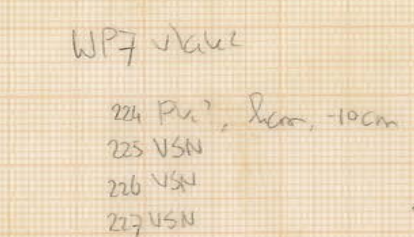 WP7 vlak 2
224 Pu?, hcm, -10cm
225 VSN
226 VSN
227 VSN